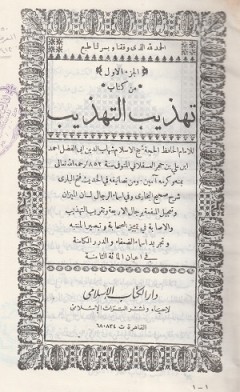 الحمد لله الذي وفقنا ويسر لنا طبع
الجزء الاول
من كتاب
تهذيب التهذيب
للامام الحافظ الحجة شيخ الاسلام شهاب الدين ابي الفضل احمد
ابن علي بن حجر العسقلاني المتوفى سنة ٨٥٢ رحمه الله تعالى
بمنه وكرمه آمين ومن تصانيفه في الحديث فتح الباري
شرح صحيح البخاري وفي اسماء الرجال لسان الميزان
وتعجيل المنفعة برجال الاربعة وتقريب التهذيب
والاصابة في تمييز الصحابة وتبصير المنتبه
وتجريد اسماء الضعفاء والدرر الكامنة
في اعيان المائة الثامنة
دار الكتاب الإسلامي
لإحياء ونشر التراث الإسلامي
القاهرة ت ٦٨٠٨٣٤
١ - ١